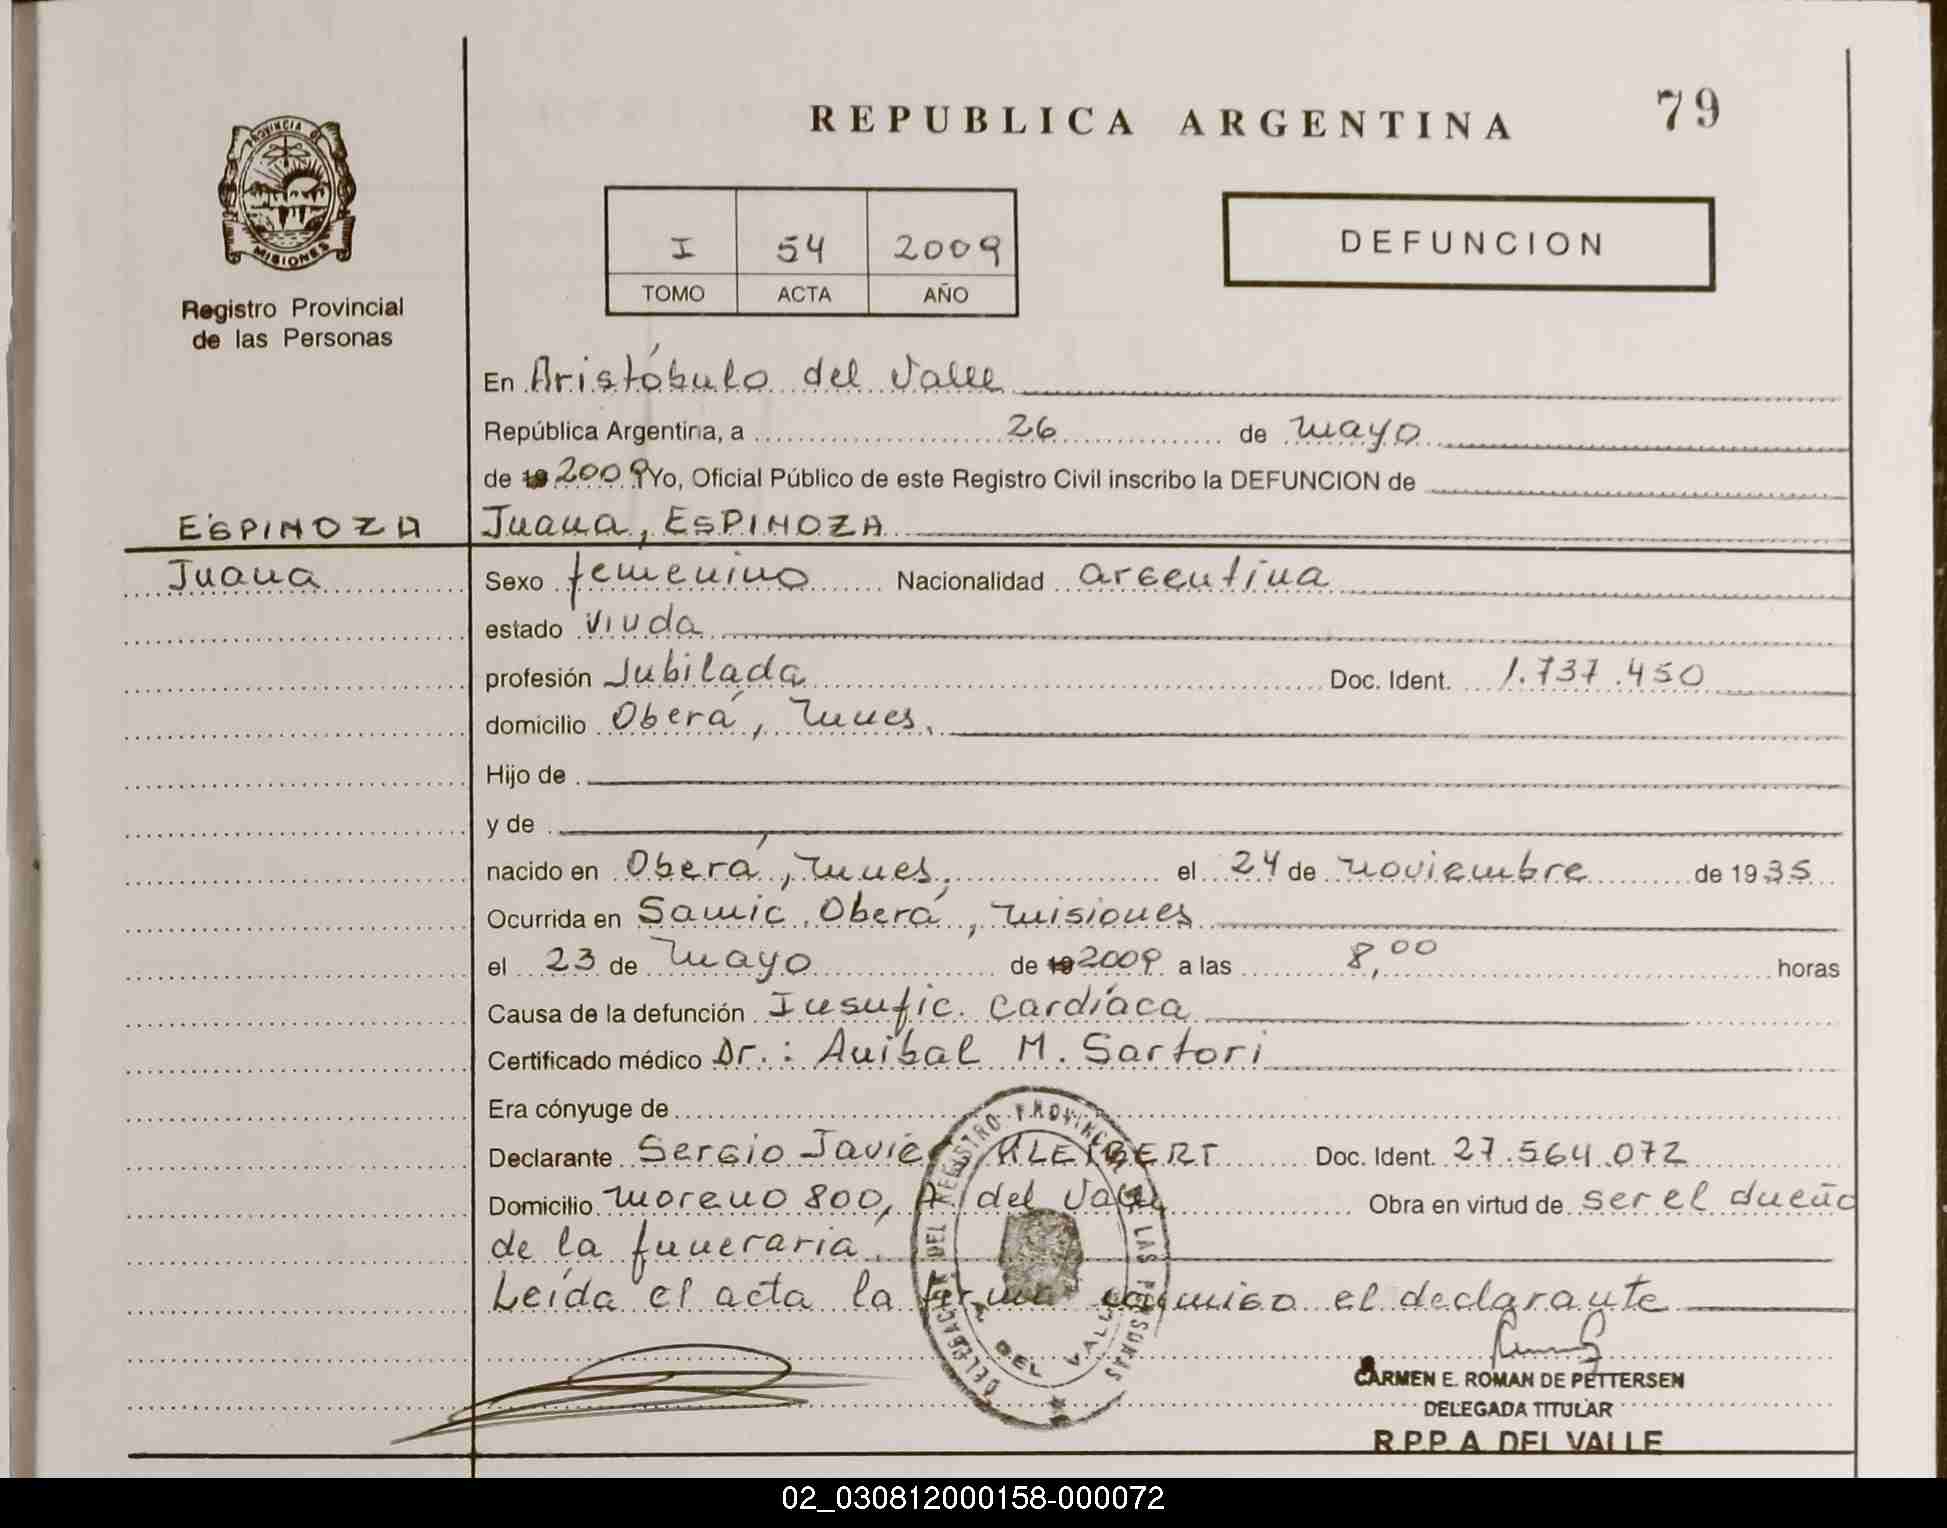 REPUBLICA ARGENTINA 79
PROVINCIA DE
MISIONES
Registro Provincial
de las Personas
I 54 2009
TOMO ACTA AÑO
DEFUNCION
En Aristóbulo del Valle
República Argentina, a 26 de mayo
de 19 2009 Yo, Oficial Público de este Registro Civil inscribo la DEFUNCION de
ESPINOZA Juana, ESPINOZA
Juana Sexo femenino Nacionalidad argentina
estado viuda
profesión Jubilada Doc. Ident. 1.737.450
domicilio Oberá, Mnes.
Hijo de
y de
nacido en Oberá, Mnes. el 24 de noviembre de 1935
Ocurrida en Samic Oberá, Misiones
el 23 de Mayo de 19 2009 a las 8,00 horas
Causa de la defunción Insufic. Cardíaca
Certificado médico Dr.: Anibal M. Sartori
Era cónyuge de
Declarante Sergio Javier Doc. Ident. 27.564.072
Domicilio Moreno 800, A. del Valle Obra en virtud de ser el dueño
de la funeraria.
Leída el acta la firma conmigo el declarante
DELEGACION DEL REGISTRO PROVINCIAL DE LAS PERSONAS
A. DEL VALLE
CARMEN E. ROMAN DE PETTERSEN
DELEGADA TITULAR
R.P.P. A. DEL VALLE
02_030812000158-000072